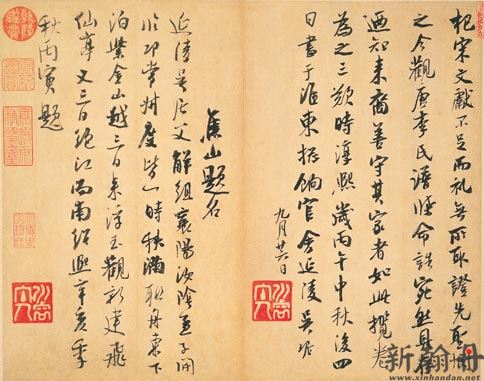 杞宋文獻不足而礼無所取證先聖
之今觀唐李氏譜牒命誥宛然具存
迺知来裔善守其家者如此攬卷
為之三歎時淳熙歲丙午中秋後四
日書于淮東總餉官舍延陵吳琚
九月廿六日
焦山題名
延陵吳居父解組襄陽汝陰孟子開
常州度皆一時秋滿聯舟東下
泊紫金山越三日来浮玉觀新建飛
仙亭又三日絕江而南紹熙辛亥季
秋丙寅題
www.xinhandan.net